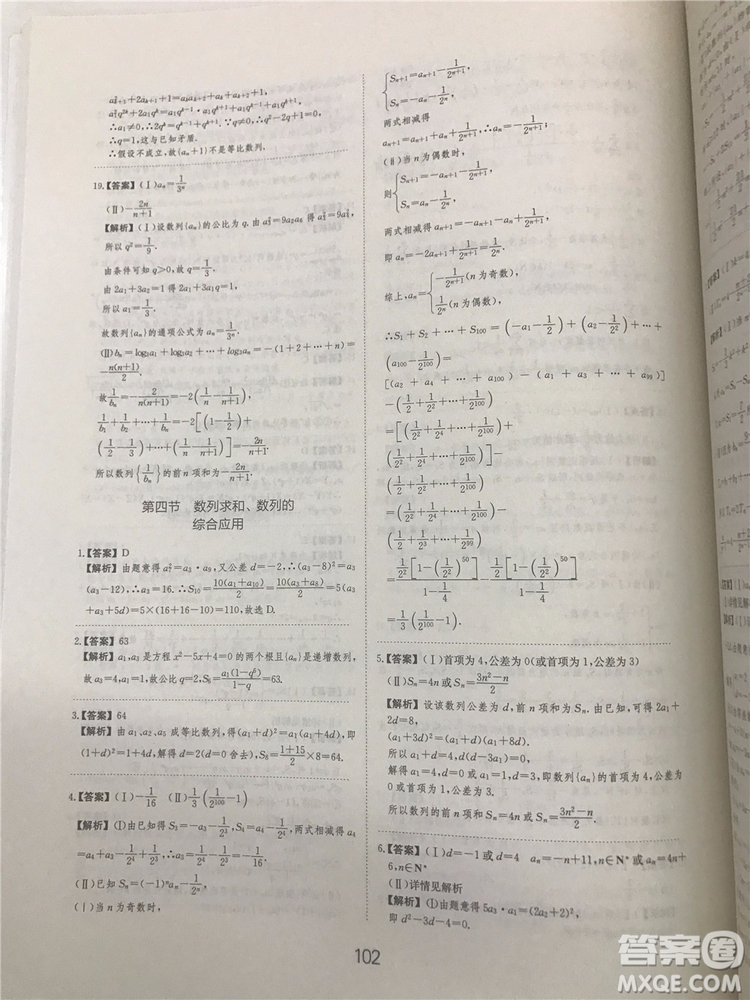 a²ₖ₊₂+2aₖ₊₁+1=aₖaₖ₊₂+aₖ+aₖ₊₂+1,
a₁²q²ᵏ+2a₁qᵏ=a₁qᵏ⁻¹·a₁qᵏ⁺¹+a₁qᵏ⁻¹+a₁qᵏ⁺¹,
∴a₁≠0,∴2qᵏ=qᵏ⁻¹+qᵏ⁺¹.∵q≠0,∴q²-2q+1=0,
∴q=1,这与已知矛盾.
∴假设不成立,故{aₙ+1}不是等比数列.
19.【答案】(Ⅰ)aₙ=1/3ⁿ
(Ⅱ)-2n/(n+1)
【解析】(Ⅰ)设数列{aₙ}的公比为q.由a₃²=9a₂a₆得a₃²=9a₄²,
所以q²=1/9.
由条件可知q>0,故q=1/3.
由2a₁+3a₂=1得2a₁+3a₁q=1,
所以a₁=1/3.
故数列{aₙ}的通项公式为aₙ=1/3ⁿ.
(Ⅱ)bₙ=log₃a₁+log₃a₂+…+log₃aₙ=-(1+2+…+n)=
-n(n+1)/2.
故1/bₙ=-2/(n(n+1))=-2(1/n-1/(n+1)),
1/b₁+1/b₂+…+1/bₙ=-2[(1-1/2)+
(1/2-1/3)+…+(1/n-1/(n+1))]=-2n/(n+1),
所以数列{1/bₙ}的前n项和为-2n/(n+1).
第四节 数列求和、数列的
综合应用
1.【答案】D
【解析】由题意得a₇²=a₃·a₉,又公差d=-2,∴(a₃-8)²=a₃
(a₃-12),∴a₃=16.∴S₁₀=10(a₁+a₁₀)/2=10(a₃+a₈)/2=5(a₃
+a₃+5d)=5×(16+16-10)=110,故选D.
2.【答案】63
【解析】a₁,a₃是方程x²-5x+4=0的两个根且{aₙ}是递增数列,
故a₁=1,a₃=4,故公比q=2,S₆=a₁(1-q⁶)/(1-q)=63.
3.【答案】64
【解析】由a₁、a₂、a₅成等比数列,得(a₁+d)²=a₁(a₁+4d),即
(1+d)²=1+4d,解得d=2(d=0舍去),S₈=(1+15)/2×8=64.
4.【答案】(Ⅰ)-1/16 (Ⅱ)1/3(1/2¹⁰⁰-1)
【解析】(Ⅰ)由已知得S₃=-a₃-1/2³,S₄=a₄-1/2⁴,两式相减得a₄
=a₄+a₃-1/2⁴+1/2³,∴a₃=1/2⁴-1/2³=-1/16.
(Ⅱ)已知Sₙ=(-1)ⁿaₙ-1/2ⁿ,
(ⅰ)当n为奇数时,
{Sₙ₊₁=aₙ₊₁-1/2ⁿ⁺¹,
Sₙ=-aₙ-1/2ⁿ,
两式相减得
aₙ₊₁=aₙ₊₁+aₙ+1/2ⁿ⁺¹,∴aₙ=-1/2ⁿ⁺¹;
(ⅱ)当n为偶数时,
则{Sₙ₊₁=-aₙ₊₁-1/2ⁿ⁺¹,
Sₙ=aₙ-1/2ⁿ,
两式相减得aₙ₊₁=-aₙ₊₁-aₙ+1/2ⁿ⁺¹,
即aₙ=-2aₙ₊₁+1/2ⁿ⁺¹=1/2ⁿ.
综上,aₙ={-1/2ⁿ⁺¹(n为奇数),
1/2ⁿ(n为偶数),
∴S₁+S₂+…+S₁₀₀=(-a₁-1/2)+(a₂-1/2²)+…+
(a₁₀₀-1/2¹⁰⁰)=
[(a₂+a₄+…+a₁₀₀)-(a₁+a₃+…+a₉₉)]
-(1/2+1/2²+…+1/2¹⁰⁰)
=[(1/2²+1/2⁴+…+1/2¹⁰⁰)+
(1/2²+1/2⁴+…+1/2¹⁰⁰)]-
(1/2+1/2²+…+1/2¹⁰⁰)
=(1/2²+1/2⁴+…+1/2¹⁰⁰)-
(1/2+1/2³+…+1/2⁹⁹)
=1/2²[1-(1/2²)⁵⁰]/(1-1/4)-1/2[1-(1/2²)⁵⁰]/(1-1/4)
=1/3(1/2¹⁰⁰-1).
5.【答案】(Ⅰ)首项为4,公差为0(或首项为1,公差为3)
(Ⅱ)Sₙ=4n或Sₙ=(3n²-n)/2
【解析】设该数列公差为d,前n项和为Sₙ.由已知,可得2a₁
+2d=8,
(a₁+3d)²=(a₁+d)(a₁+8d).
所以a₁+d=4,d(d-3a₁)=0,
解得a₁=4,d=0或a₁=1,d=3,即数列{aₙ}的首项为4,公差
为0或首项为1,公差为3.
所以数列的前n项和Sₙ=4n或Sₙ=(3n²-n)/2.
6.【答案】(Ⅰ)d=-1或d=4 aₙ=-n+11,n∈N*或aₙ=4n+
6,n∈N*
(Ⅱ)详情见解析
【解析】(Ⅰ)由题意得5a₃·a₁=(2a₂+2)²,
即d²-3d-4=0.
102
答案圈
MXQE.COM